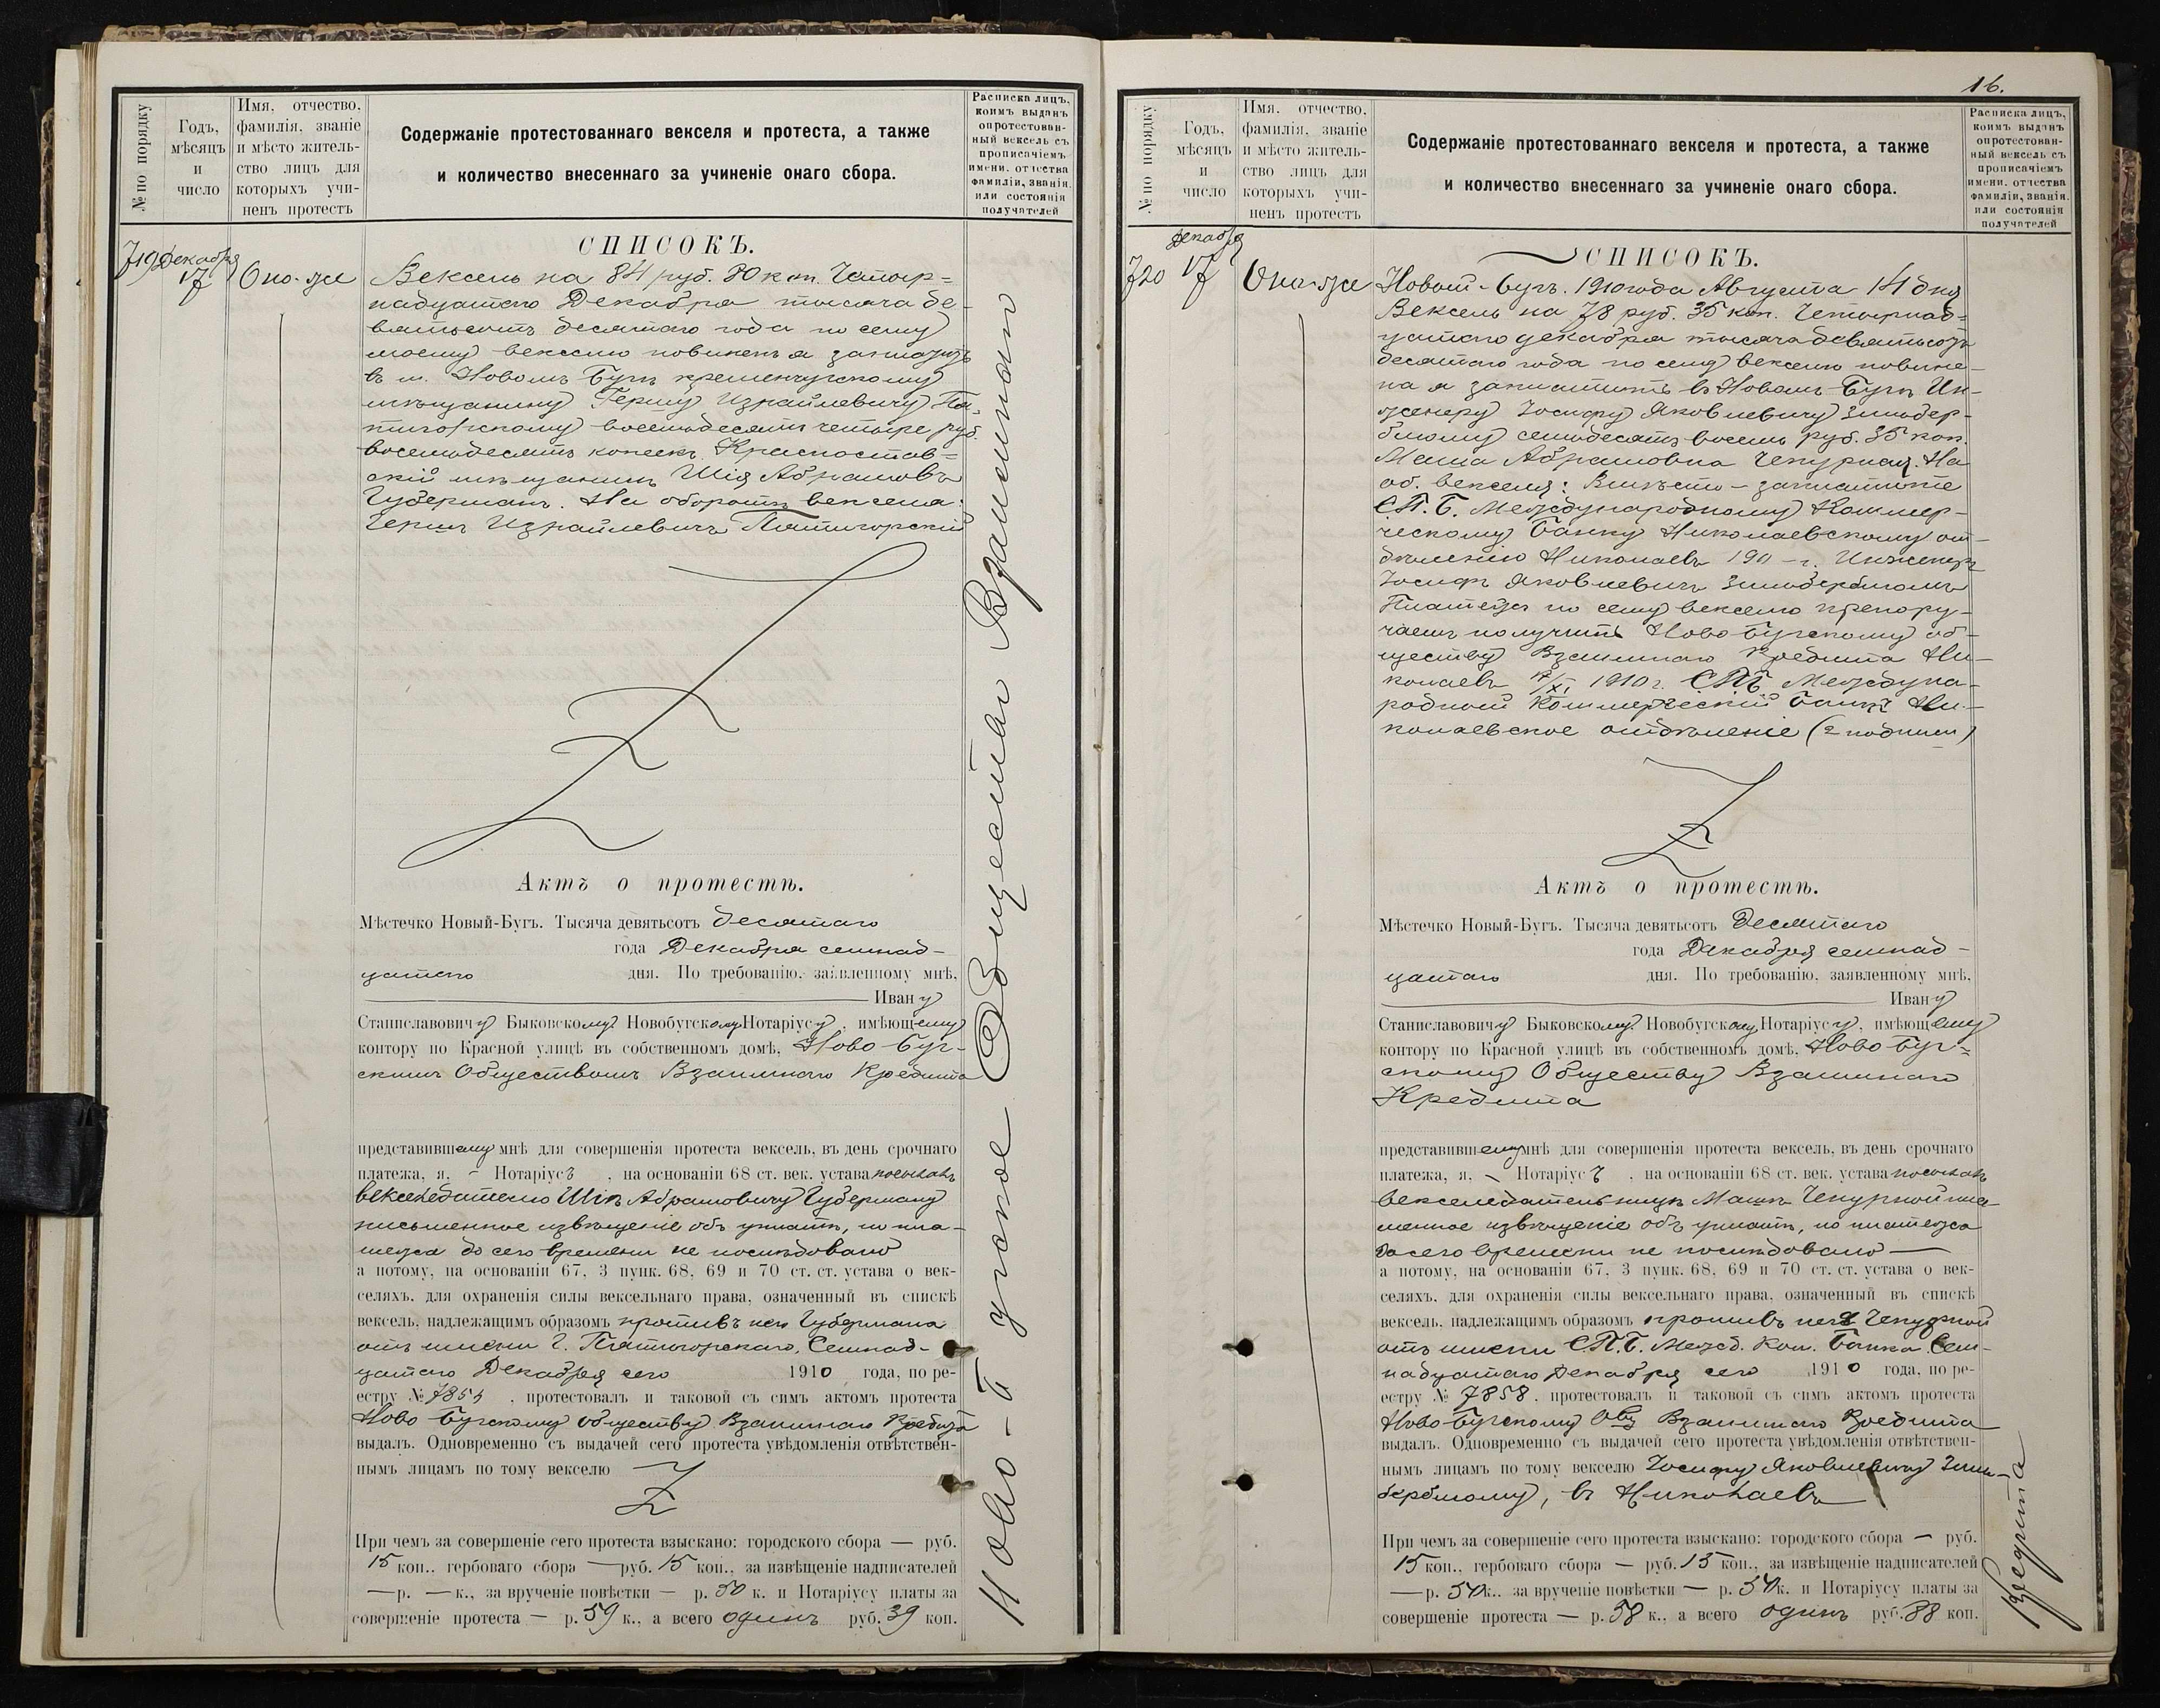 № по порядку
Годъ, мѣсяцъ и число
Имя, отчество, фамилія, званіе и мѣсто жительство лицъ для которыхъ учиненъ протестъ
Содержаніе протестованнаго векселя и протеста, а также
и количество внесеннаго за учиненіе онаго сбора.
Расписка лицъ, коимъ выданъ опротестованный вексель съ прописаніемъ имени, отчества фамиліи, званія, или состоянія получателей
719
Декабря
17
Оно-же
СПИСОКЪ.
Вексель на 84 руб. 80 коп. Четыр=
надцатаго Декабря тысяча де-
вятьсотъ десятаго года по сему
моему векселю повиненъ я заплатить
въ м. Новомъ Бугѣ кременчугскому
мѣщанину Гершу Израйлевичу Пя-
тигорскому восемьдесятъ четыре руб.
восемьдесятъ копѣекъ. Красностав=
скій мѣщанинъ Шія Абрамовъ
Губерманъ. На оборотѣ векселя:
Гершъ Израйлевичъ Пятигорскій
Актъ о протестѣ.
Мѣстечко Новый-Бугъ. Тысяча девятьсотъ десятаго
года Декабря семнад-
цатаго дня. По требованію, заявленному мнѣ,
Ивану
Станиславовичу Быковскому Новобугскому Нотаріусу, имѣющему
контору по Красной улицѣ въ собственномъ домѣ, Ново Буг-
скимъ Обществомъ Взаимнаго Кредита
представившему мнѣ для совершенія протеста вексель, въ день срочнаго
платежа, я, – Нотаріусъ, на основаніи 68 ст. век. устава посылалъ
векселедателю Шіѣ Абрамовичу Губерману
письменное извѣщеніе объ уплатѣ, но пла-
тежа до сего времени не послѣдовало
а потому, на основаніи 67, 3 пунк. 68, 69 и 70 ст. ст. устава о век-
селяхъ, для охраненія силы вексельнаго права, означенный въ спискѣ
вексель, надлежащимъ образомъ противъ него Губермана
отъ имени Г. Пятигорскаго, Семнад-
цатаго Декабря сего 1910 года, по ре-
естру №, протестовалъ и таковой съ симъ актомъ протеста
Ново Бугскому обществу Взаимнаго Кредита
выдалъ. Одновременно съ выдачей сего протеста увѣдомленія отвѣтствен-
нымъ лицамъ по тому векселю
При чемъ за совершеніе сего протеста взыскано: городского сбора — руб.
15 коп., гербоваго сбора — руб. 15 коп., за извѣщеніе надписателей
— р. — к., за врученіе повѣстки — р. 50 к. и Нотаріусу платы за
совершеніе протеста — р. 59 к., а всего одинъ руб. 39 коп.
Ново-Б угское Общество Взаимнаго
16.
№ по порядку
Годъ, мѣсяцъ и число
Имя, отчество, фамилія, званіе и мѣсто жительство лицъ для которыхъ учиненъ протестъ
Содержаніе протестованнаго векселя и протеста, а также
и количество внесеннаго за учиненіе онаго сбора.
Расписка лицъ, коимъ выданъ опротестованный вексель съ прописаніемъ имени, отчества фамиліи, званія, или состоянія получателей
720
Декабря
17
Оно-же
СПИСОКЪ.
Новый-Бугъ. 1910 года Августа 14 дня
Вексель на 78 руб. 35 коп. Четырнад=
цатаго декабря тысяча девятьсотъ
десятаго года по сему векселю повин-
на я заплатить въ Новомъ Бугѣ Ин-
женеру Іосифу Яковлевичу Зильбер-
блюму семьдесятъ восемь руб. 35 коп.
Маша Абрамовна Чекурная. На
об. векселя: Вмѣсто – заплатите
С.П.Б. Международному Коммер-
ческому Банку Николаевскому от-
дѣленію Николаевъ 190 – г. Инженеръ
Іосифъ Яковлевичъ Зильберблюмъ
Платежъ по сему векселю препору-
чаемъ получить Ново Бугскому об-
ществу Взаимнаго Кредита Ни-
колаевъ 17/XI 1910 г. СПБ Междуна-
родный Коммерческій Банкъ Ни-
колаевское отдѣленіе (2 подписи)
Актъ о протестѣ.
Мѣстечко Новый-Бугъ. Тысяча девятьсотъ Десятаго
года Декабря семнад-
цатаго дня. По требованію, заявленному мнѣ,
Ивану
Станиславовичу Быковскому Новобугскому Нотаріусу, имѣющему
контору по Красной улицѣ въ собственномъ домѣ, Ново Буг=
скому Обществу Взаимнаго
Кредита
представившему мнѣ для совершенія протеста вексель, въ день срочнаго
платежа, я, – Нотаріусъ, на основаніи 68 ст. век. устава посылалъ
векселедательницѣ Машѣ Чекурной
менное извѣщеніе объ уплатѣ, но платежа
до сего времени не послѣдовало —
а потому, на основаніи 67, 3 пунк. 68, 69 и 70 ст. ст. устава о век-
селяхъ, для охраненія силы вексельнаго права, означенный въ спискѣ
вексель, надлежащимъ образомъ противъ нея Чекурной
отъ имени С.П.Б. Межд. Ком. Банка, Сем-
надцатаго Декабря сего 1910 года, по ре-
естру № 7858, протестовалъ и таковой съ симъ актомъ протеста
Ново Бугскому Обву Взаимнаго Кредита
выдалъ. Одновременно съ выдачей сего протеста увѣдомленія отвѣтствен-
нымъ лицамъ по тому векселю Іосифу Яковлевичу Зиль-
берблюму, въ Николаевъ
При чемъ за совершеніе сего протеста взыскано: городского сбора — руб.
15 коп., гербоваго сбора — руб. 15 коп., за извѣщеніе надписателей
— р. 50 к., за врученіе повѣстки — р. 50 к. и Нотаріусу платы за
совершеніе протеста — р. 58 к., а всего одинъ руб. 88 коп.
Кредита